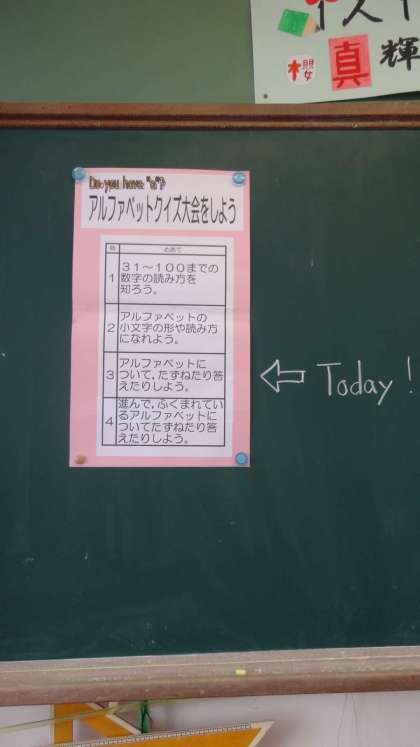 櫻
真
輝
Do you have "a"?
アルファベットクイズ大会をしよう
時 めあて
1 31～100までの
数字の読み方を
知ろう。
2 アルファベットの
小文字の形や読み方
になれよう。
3 アルファベットに
ついて,たずねたり答
えたりしよう。
4 進んで,ふくまれてい
るアルファベットに
ついてたずねたり答
えたりしよう。
⇐ Today!